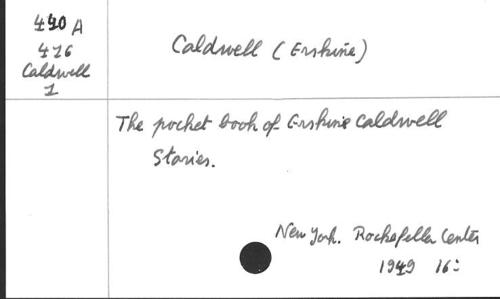 420 A
416
Caldwell
1
Caldwell (Erskine)
The pocket book of Erskine Caldwell
Stories.
New York. Rockefeller Center
1949 16: